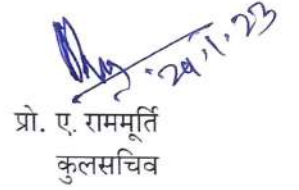 24.1.23
प्रो. ए. राममूर्ति
कुलसचिव